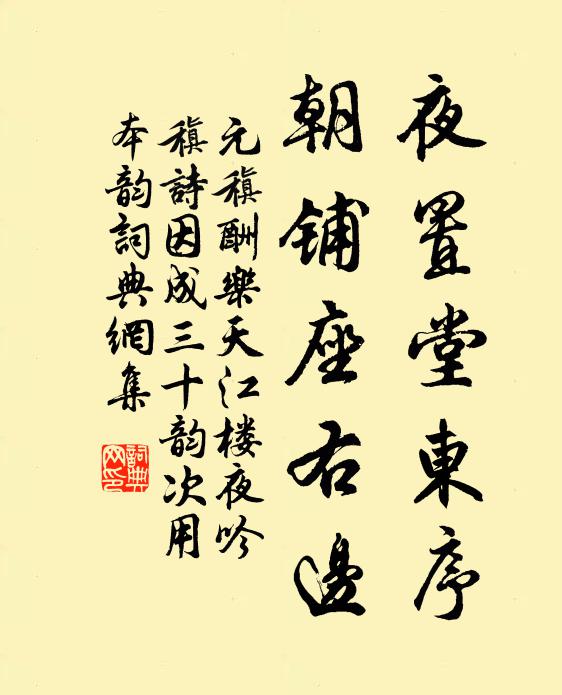 夜置堂東序
朝铺座右邊
元稹酬樂天江楼夜吟
稹詩因成三十韵次用
本韵詞典網集
詞典
网印